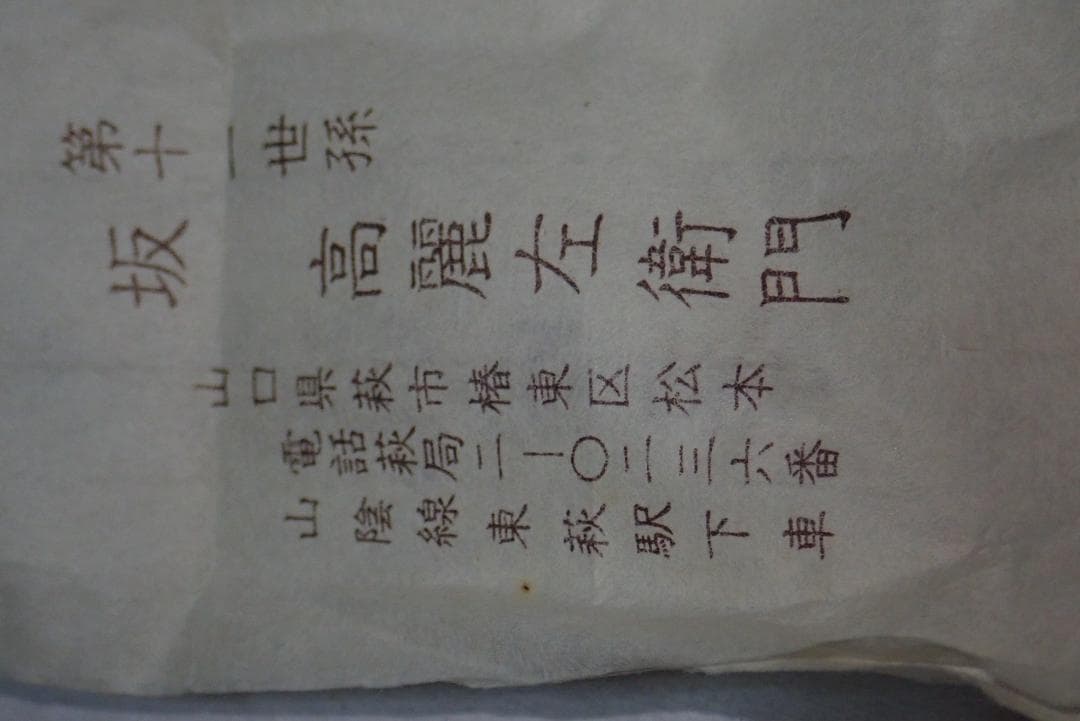 第十一世孫
坂高麗左衛門
山口県萩市椿東区松本
電話萩局二―〇二三六番
山陰線東萩駅下車